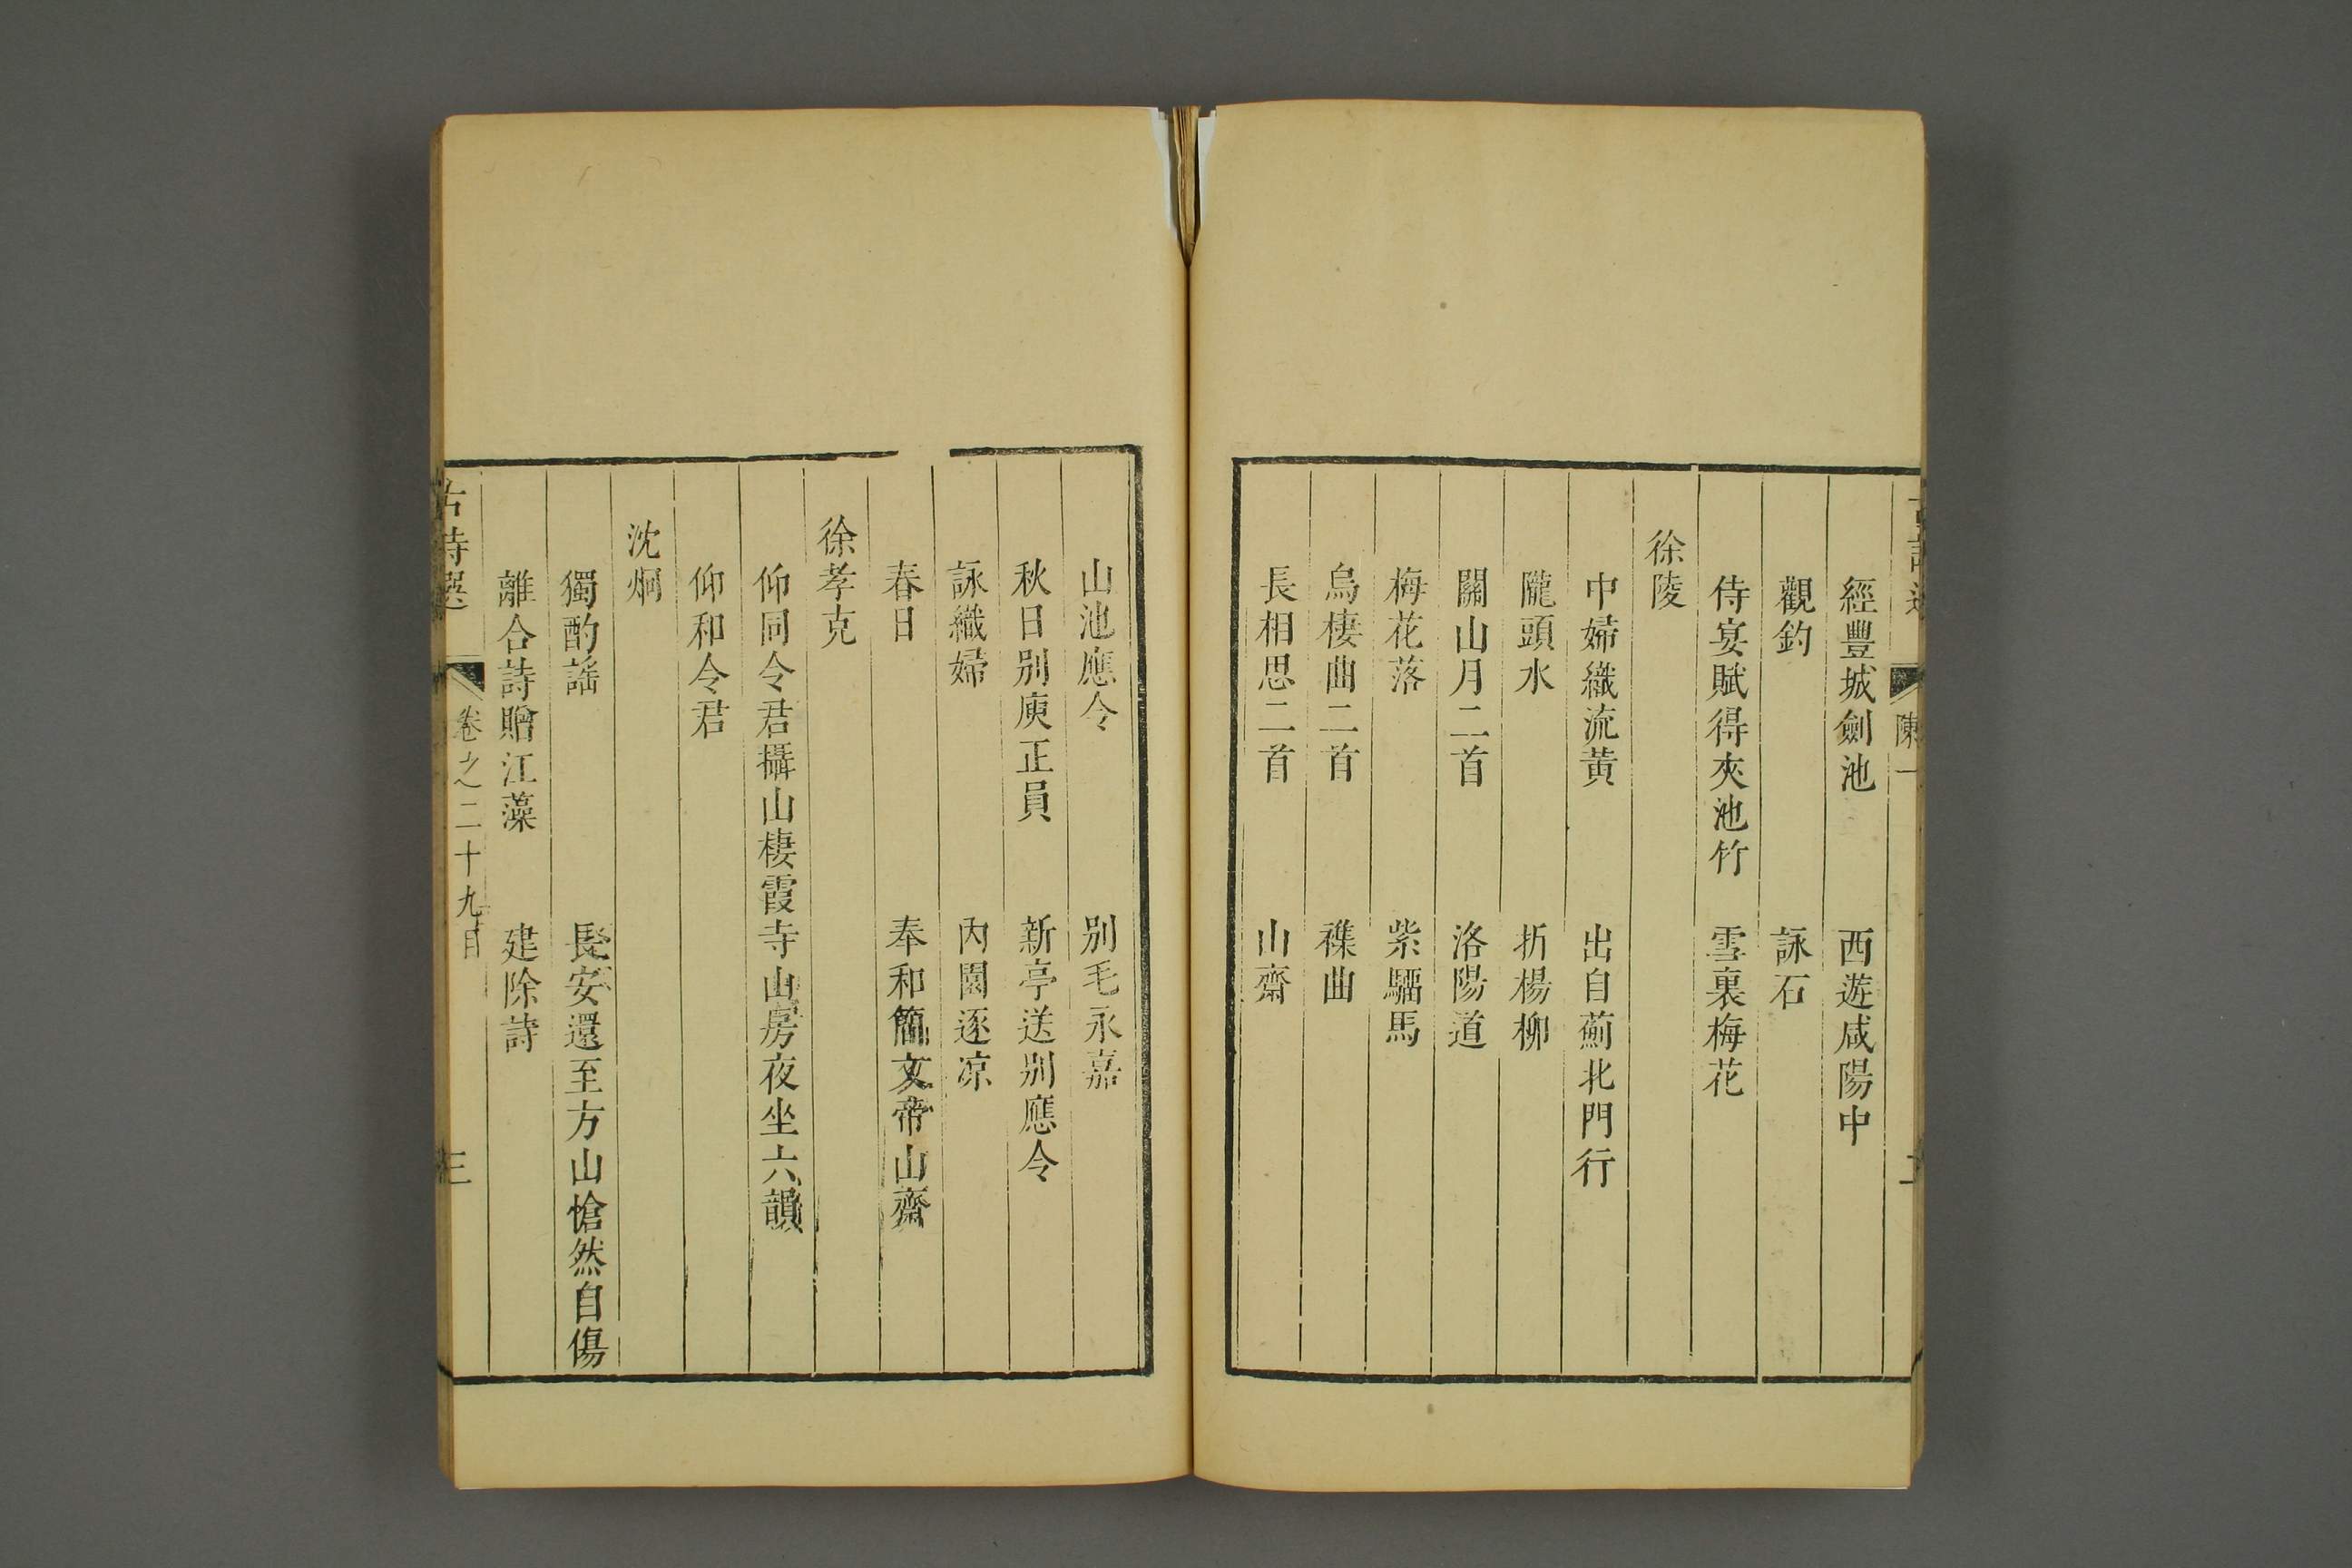 陳一
經豐城劍池　西遊咸陽中
觀釣　詠石
侍宴賦得夾池竹　雪裏梅花
徐陵
中婦織流黃　出自薊北門行
隴頭水　折楊柳
關山月二首　洛陽道
梅花落　紫騮馬
烏棲曲二首　襍曲
長相思二首　山齋
山池應令　別毛永嘉
秋日別庾正員　新亭送別應令
詠織婦　內園逐凉
春日　奉和簡文帝山齋
徐孝克
仰同令君攝山棲霞寺山房夜坐六韻
仰和令君
沈炯
獨酌謠　長安還至方山愴然自傷
離合詩贈江藻　建除詩
古詩選　卷之二十九目　三